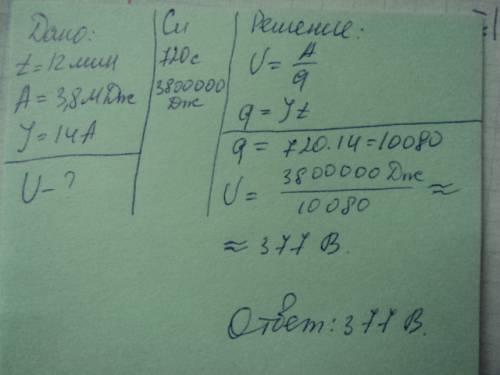 Дано:
t = 12 мин
A = 3,8 МДж
J = 14 А
U - ?
Си
720 с
3800000
Дж
Решение:
U = A/q
q = Jt
q = 720 · 14 = 10080
U = 3800000 Дж / 10080 ≈
≈ 377 В.
Ответ: 377 В.